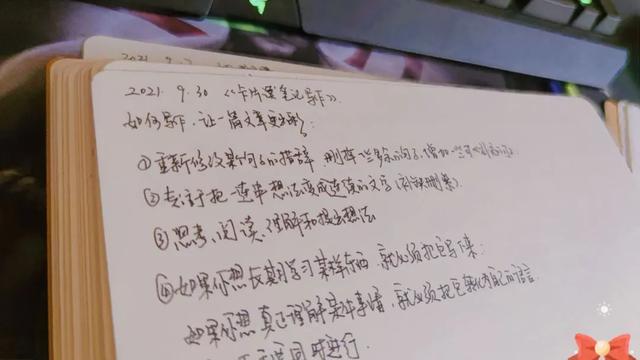 2021. 9. 30 《卡片笔记写作》.
如何写作,让一篇文章更出彩:
①重新修改某个句子的措辞 删掉一些多余的句子,增加一些
②专注于把一连串想法变成连续的文字(补缺删繁).
③思考、阅读、理解和提出想法
④如果你想长期学习某样东西,就必须把它写下来;
如果你想真正理解某件事情,就必须把它转化为自己的语言.
同时进行.